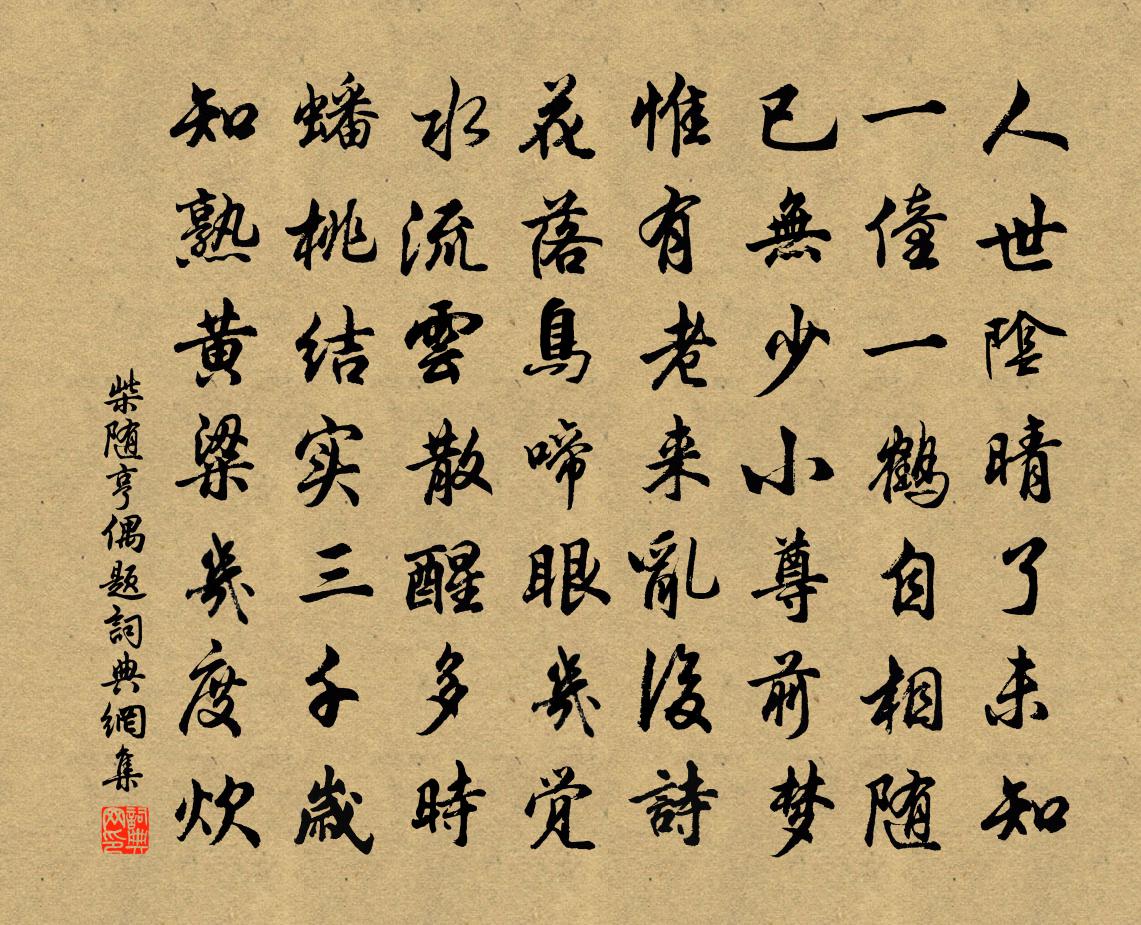 人世陰晴了未知
一僮一鶴自相随
已無少小尊前梦
惟有老来亂後詩
花落鳥啼眼幾觉
水流雲散醒多時
蟠桃结实三千歲
知熟黄粱幾度炊
柴随亨偶题詞典網集
詞典网印